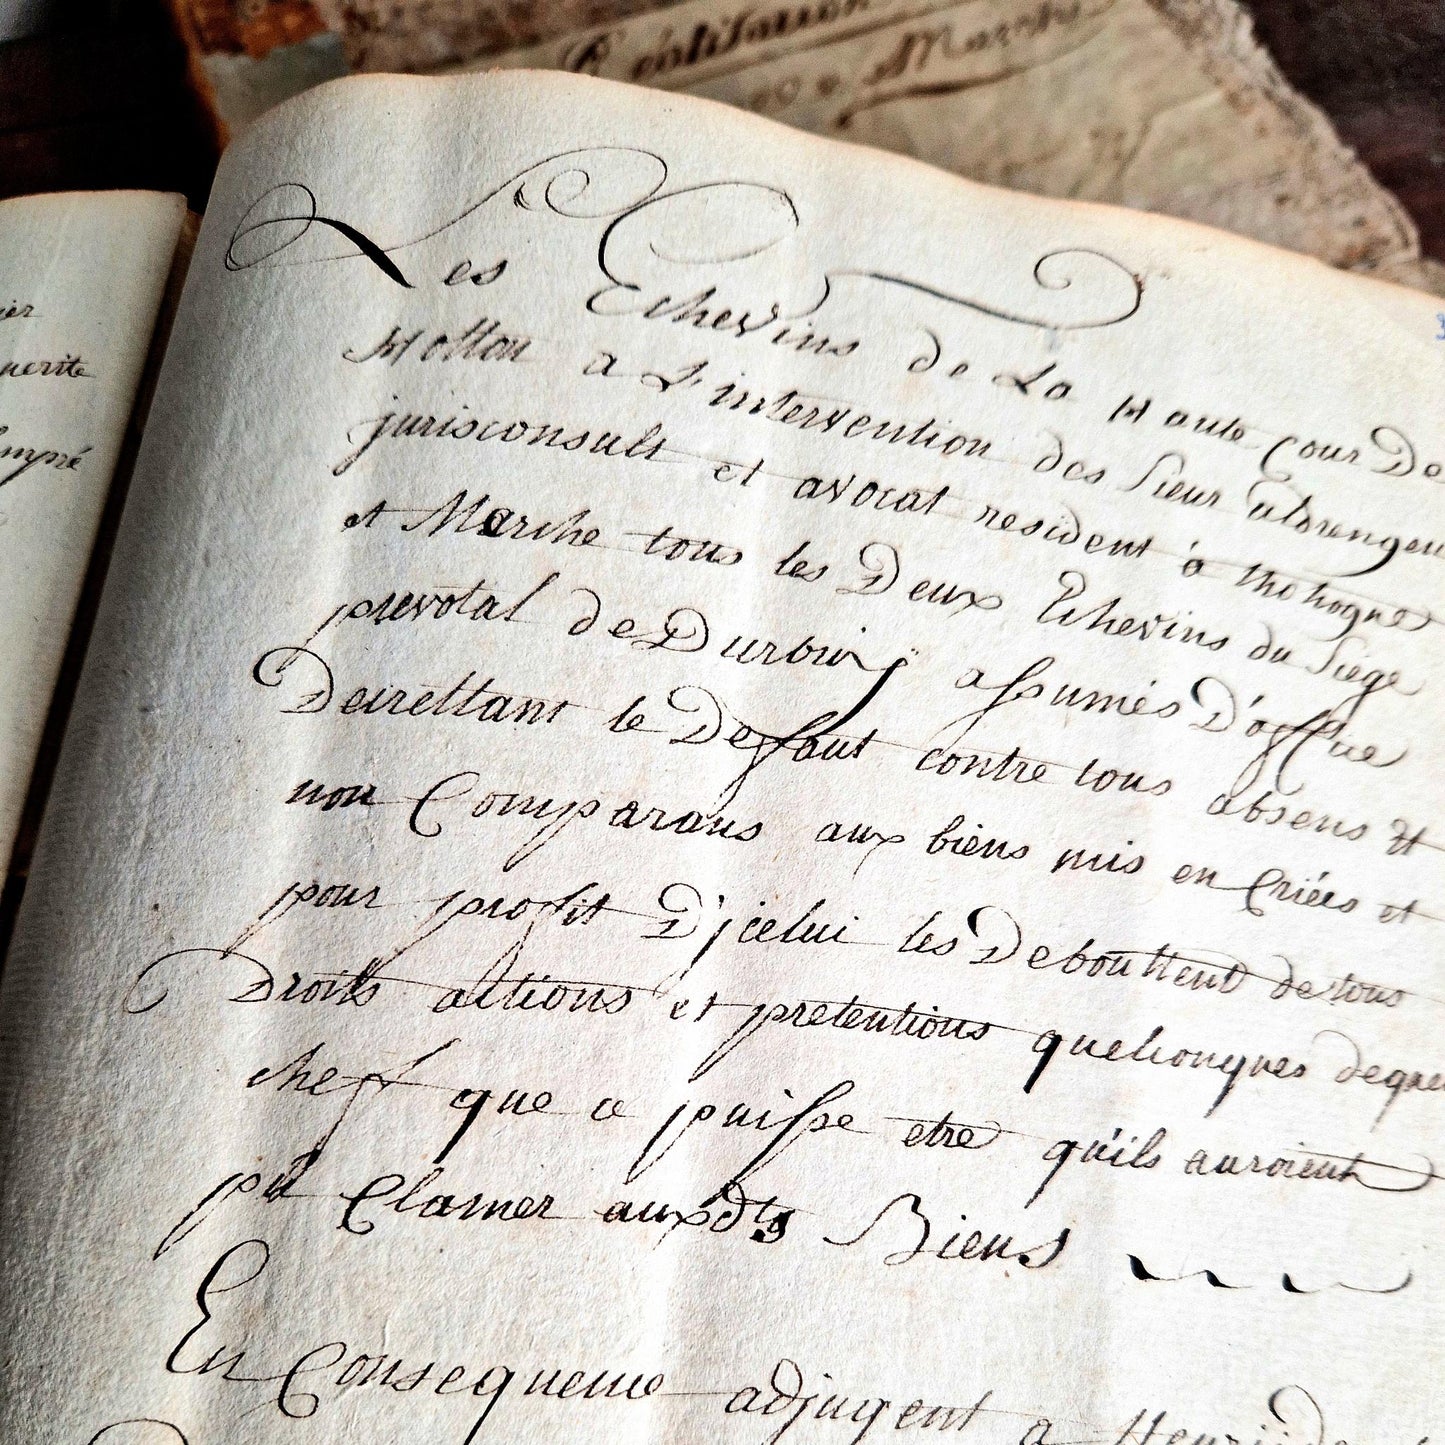 Constitution
Marche
ier
uerite
Les Echevins de La Haute Cour De
Hotton a L'intervention des sieur
jurisconsult et avocat resident à thohogne
et Marche tous les Deux Echevins du siège
prevotal de Durbuy assumés D'office
Decrettant le Deffaut contre tous absens et
non Comparans aux biens mis en Criées et
pour proffit D'jcelui les Debouttent de tous
Droits actions et pretentions quelconques de quel
cheff que ce puisse etre qu'ils auroient
pû Clamer auxdts Biens
En Consequence adjugent a Henri de